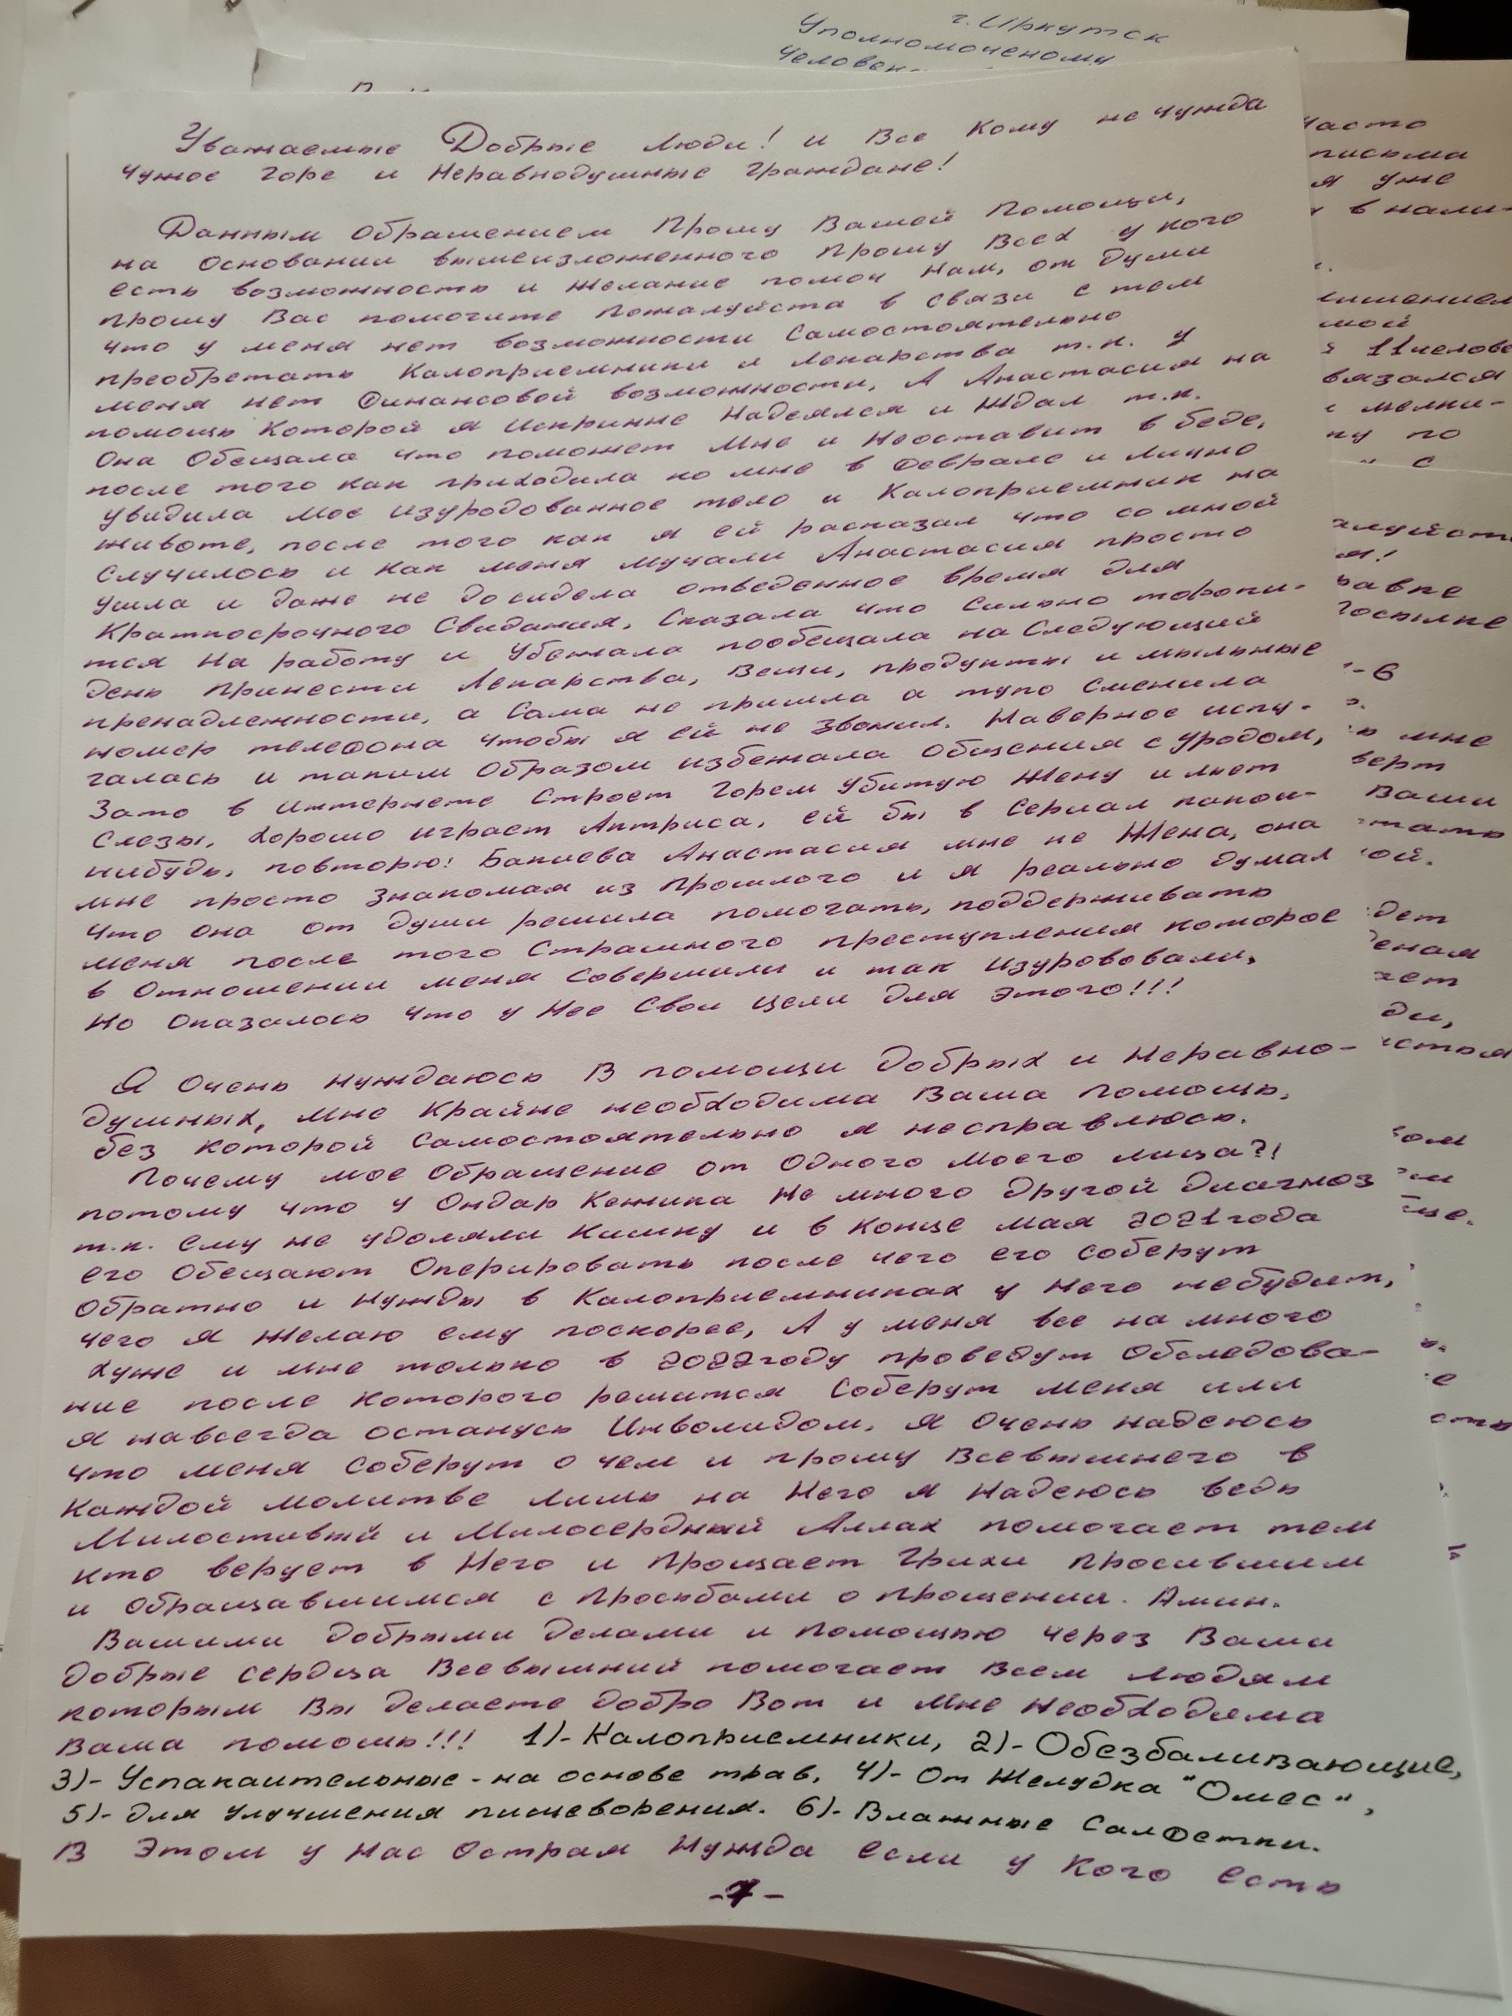 г. Иркутск
Уполномоченому
Человек
Уважаемые Добрые Люди! и Все Кому не чужда
чужое горе и Неравнодушные граждане!
Данным Обращением Прошу Вашей Помощи,
на основании вышеизложенного прошу Всех у кого
есть возможность и желание помоч Нам, от души
прошу Вас помогите Пожалуйста в связи с тем
что у меня нет возможности Самостоятельно
преобретать Калоприемники и Лекарства т.к. у
меня нет Финансовой возможности, А Анастасия на
помощь Которой я Искринне Надеялся и Ждал т.к.
Она Обещала что поможет Мне и Неоставит в беде,
после того как приходила ко мне в Феврале и Лично
увидила Мое изуродованное тело и Калоприемник на
животе, после того как я ей расказал что со мной
Случилось и Как меня мучали Анастасия просто
ушла и даже не досидела отведенное время для
Краткосрочного Свидания, Сказала что Сильно торопи-
тся На работу и убежала пообещала на Следующий
день Принести Лекарства, Вещи, продукты и мыльные
пренадлежности, а Сама не пришла а тупо Сменила
номер телефона чтобы я ей не звонил. Наверное испу-
галась и таким Образом избежала Общения с уродом,
Зато в Интернете Строет Горем Убитую Жену и льет
Слезы, Хорошо играет Актриса, ей бы в Сериал какой-
нибудь, повторю! Бакиева Анастасия мне не Жена, она
мне просто Знакомая из Прошлого и я реально думал
что она от души решила помогать, поддерживать
меня после того Страшного преступления которое
в Отношении меня Совершили и так изурововали,
Но Оказалось что у Нее Свои цели для этого!!!
Я Очень нуждаюсь В помощи добрых и Неравно-
душных, мне Крайне необходима Ваша помощь,
без Которой Самостоятельно я несправлюсь.
Почему мое Обращение от Одного Моего лица?!
потому что у Ондар Кежика Не много другой диагноз
т.к. ему не удоляли Кишку и в Конце мая 2021 года
его Обещают Оперировать после чего его соберут
Обратно и нужды в Калоприемниках у Него небудит,
чего я Желаю ему поскорее, А у меня все на много
хуже и мне только в 2022 году проведут Обследова-
ние после которого решится Соберут меня или
я навсегда останусь Инволидом. я Очень надеюсь
что меня Соберут о чем и прошу Всевышнего в
Каждой молитве Лишь на Него я Надеюсь ведь
Милостивый и Милосердный Аллах помогает тем
кто верует в Него и Прощает Грихи Просившим
и Обращавшимся с Просьбами о прощении. Амин.
Вашими добрыми делами и помощью через Ваши
добрые сердца Всевышний помогает всем людям
которым Вы делаете добро Вот и Мне Необходима
Ваша помощь!!! 1)- Калоприемники, 2)- Обезбаливающие,
3)- Успакаительные - на основе трав, 4)- От Желудка "Омес",
5)- для улучшения пищеворения. 6)- Влажные Салфетки.
В Этом у Нас Острая Нужда если у Кого есть
-7-
часто
письма
я уже
в нали-
мой
11 челове
вязался
с мелки-
ку по
с
я!
-6
мне
Ваши
ди,